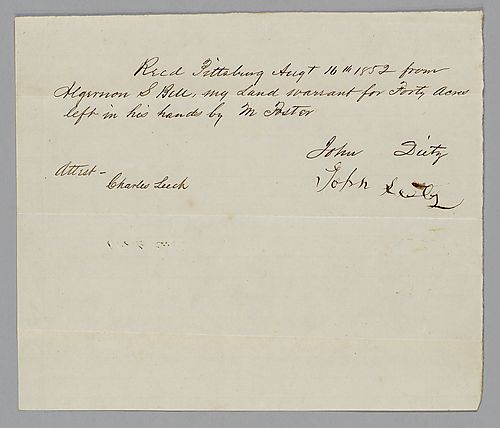 Recd Pittsburg Augt 16th 1852 from
Algernon S Bell, my Land warrant for Forty Acres
left in his hands by M Foster
John Dietz
Attest -
Charles Leech
John